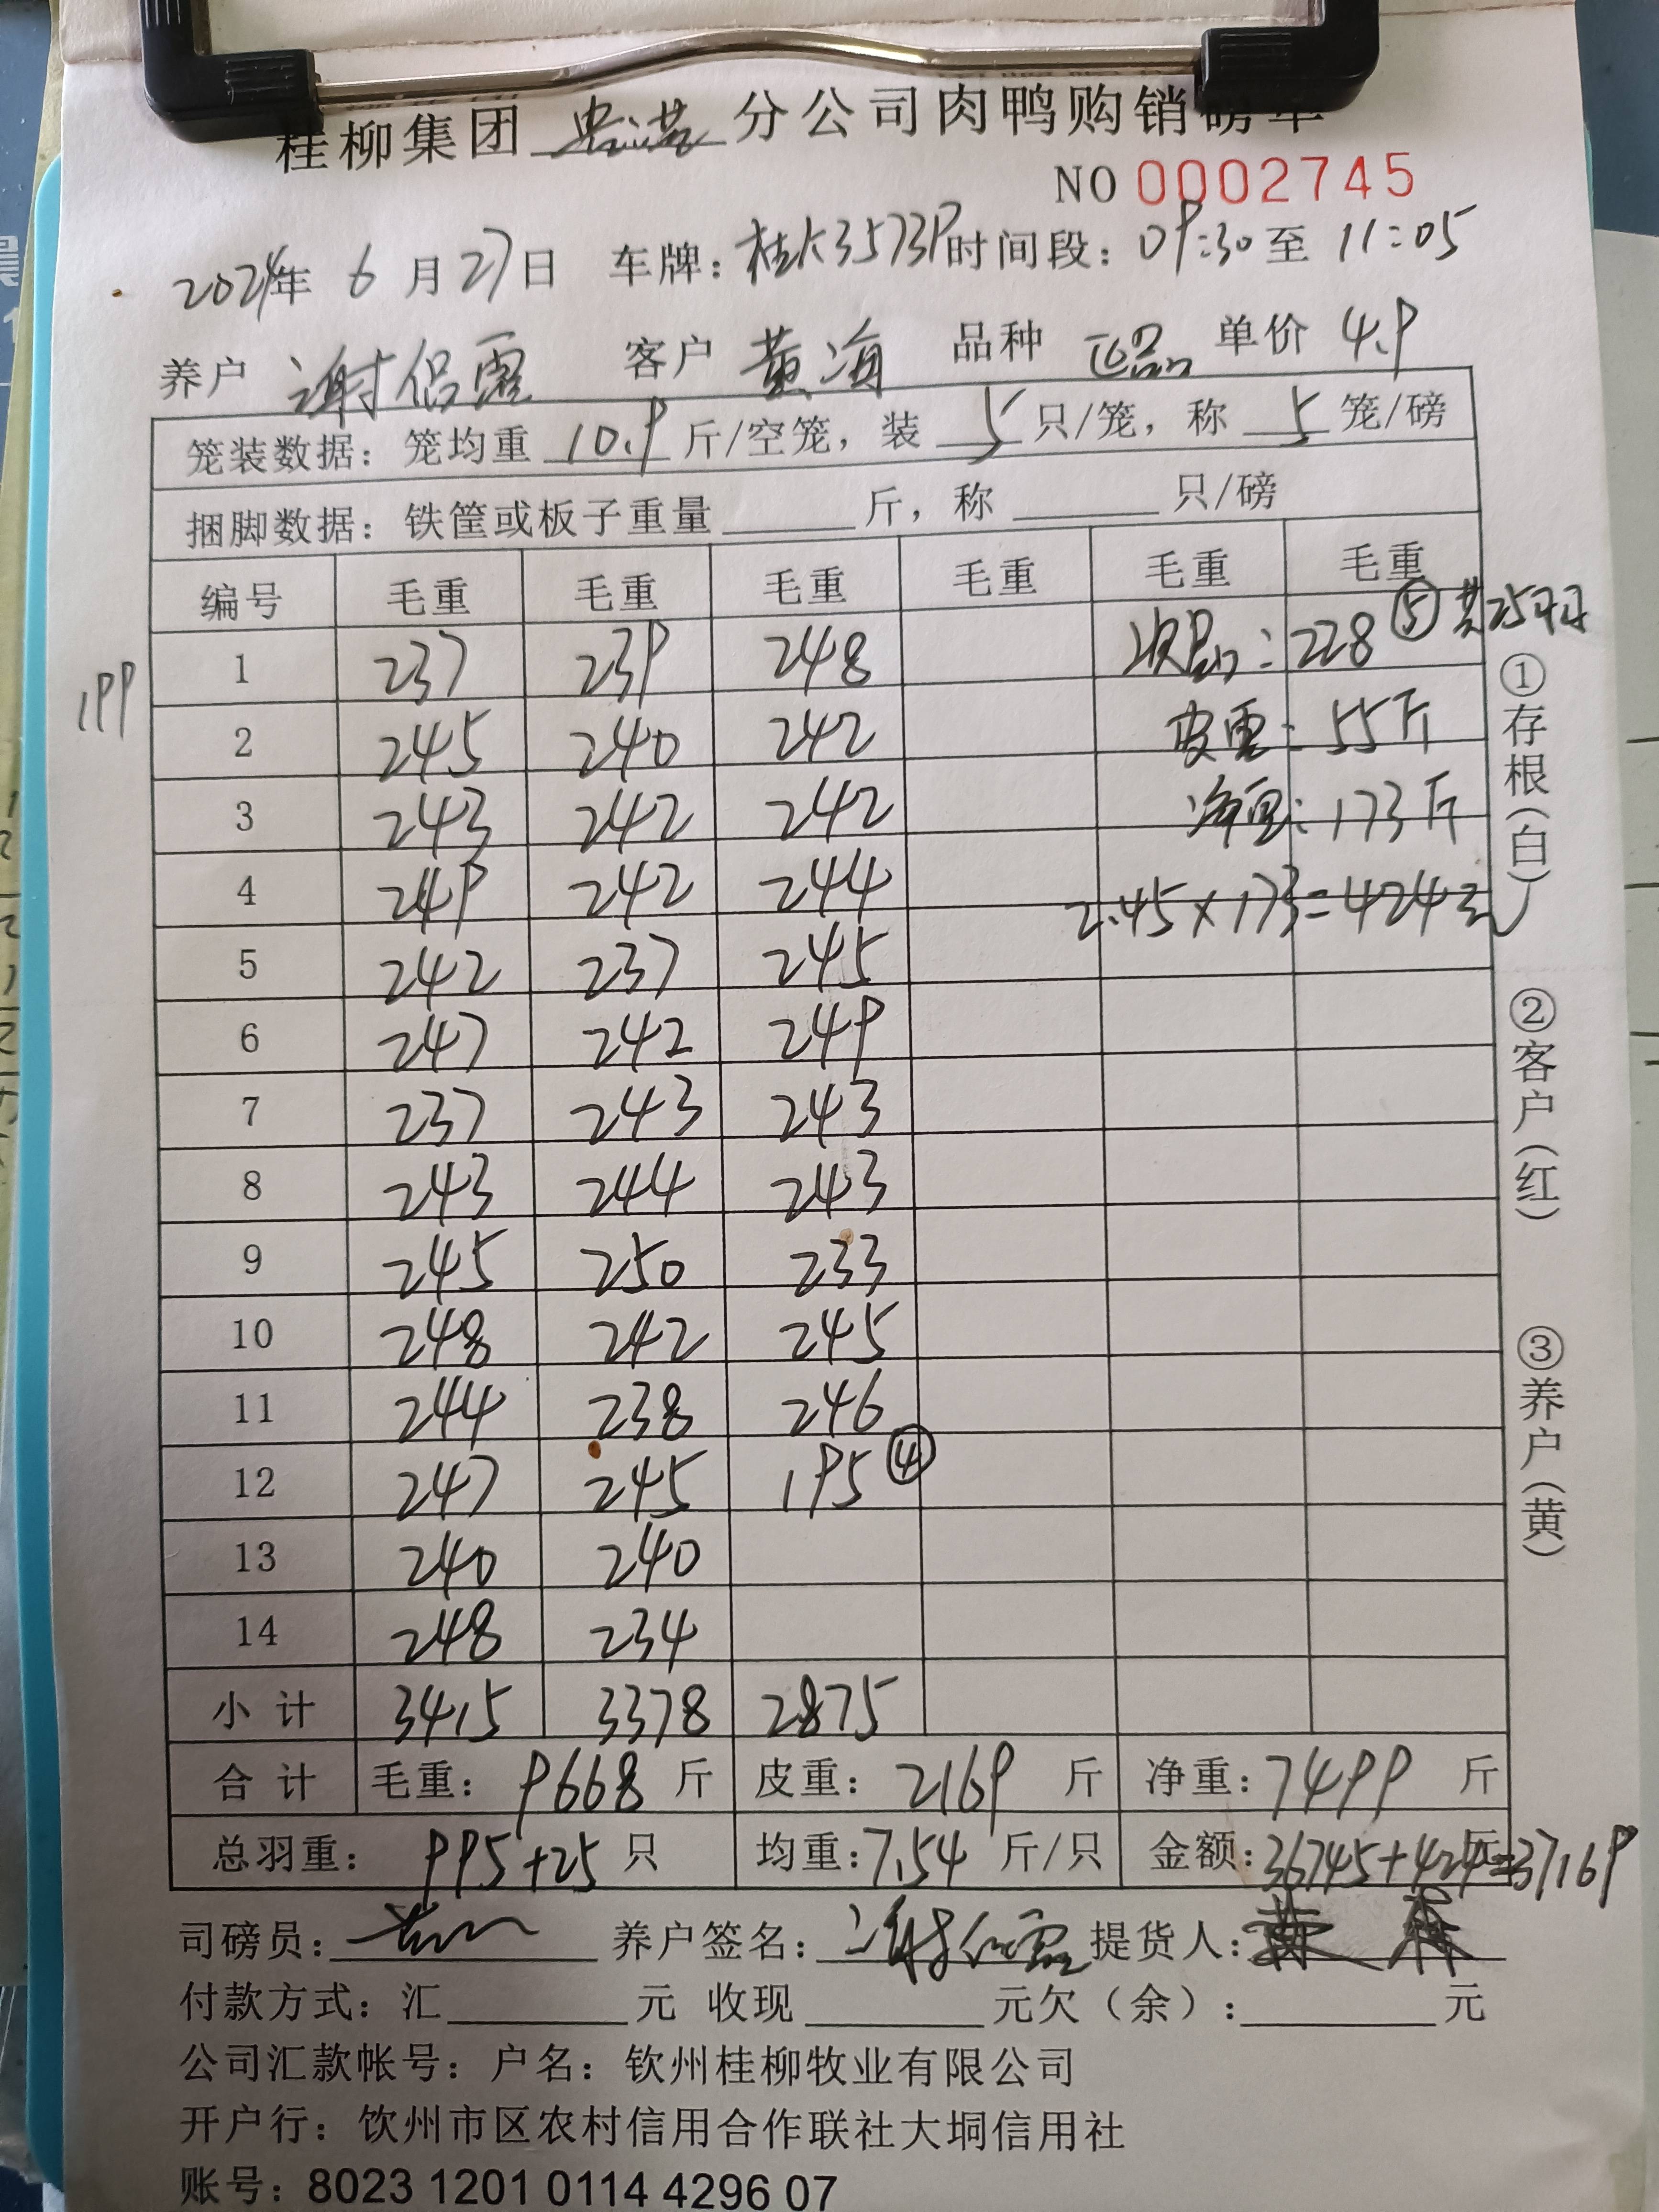 桂柳集团 贵港 分公司肉鸭购销磅单
NO 0002745
2024年 6 月 27日 车牌：桂K35739 时间段：09:30 至 11:05
养户 谢侣露 客户 黄海 品种 正品 单价 4.9
笼装数据：笼均重 10.9 斤/空笼，装 5 只/笼，称 5 笼/磅
捆脚数据：铁筐或板子重量 斤，称 只/磅
编号 毛重 毛重 毛重 毛重 毛重 毛重
1 237 239 248 次品：228 ⑤ 共25只
199
2 245 240 242 皮重：55斤
3 243 242 242 净重：173斤
4 249 242 244 2.45×173=424元
5 242 237 245
6 247 242 249
7 237 243 243
8 243 244 243
9 245 250 233
10 248 242 245
11 244 238 246
12 247 245 195 ④
13 240 240
14 248 234
小计 3415 3378 2875
合计 毛重：9668 斤 皮重：2169 斤 净重：7499 斤
总羽重：995+25 只 均重：7.54 斤/只 金额：36745+424元=37169
司磅员： 养户签名：谢侣露 提货人：
付款方式：汇 元 收现 元欠（余）： 元
公司汇款帐号：户名：钦州桂柳牧业有限公司
开户行：饮州市区农村信用合作联社大垌信用社
账号：8023 1201 0114 4296 07
①存根（白） ②客户（红） ③养户（黄）